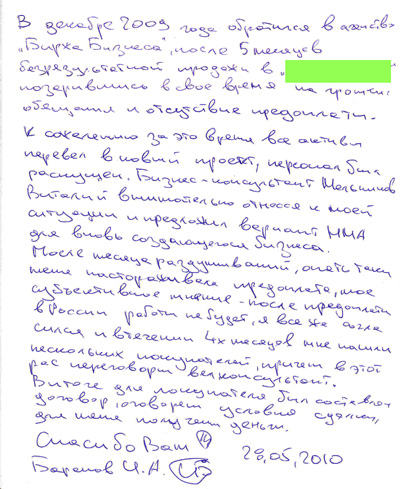 В декабре 2009 года обратился в агентство
"Биржа Бизнеса", после 5 месяцев
безрезультатной продажи в "
позарившись в свое время на громкие
обещания и отсутствие предоплаты.
К сожалению за это время все активы
перевел в новый проект, персонал был
распущен. Бизнес-консультант Мельников
Виталий внимательно относя к моей
ситуации и предложил вариант ММА
для вновь создающегося бизнеса.
После месяца раздумываний, опять таки
меня настораживала предоплата, мое
субъективное мнение - после предоплаты
в России работы не будет, я все же согла
сился и втечении 4х месяцев мне нашли
нескольких покупателей, причем в этот
раз переговоры вел консультант.
Витоге для покупателя был составлен
договор, оговорены условия сделки,
для меня получены деньги.
Спасибо Вам
Баранов И.А. 28,05,2010